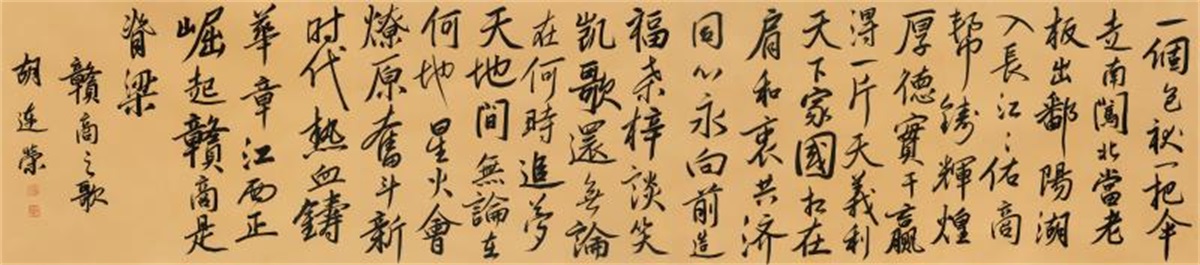 一個包袱一把伞
走南闖北當老
板出鄱陽湖
入長江江佑商
幫鑄輝煌
厚德實干贏
得一片天義利
天下家國扛在
肩和衷共济
同心永向前造
福桑梓談笑
凱歌還無論
在何時追夢
天地間無論在
何地星火會
燎原奮斗新
时代熱血鑄
華章江西正
崛起贛商是
脊梁
贛商之歌
胡連榮